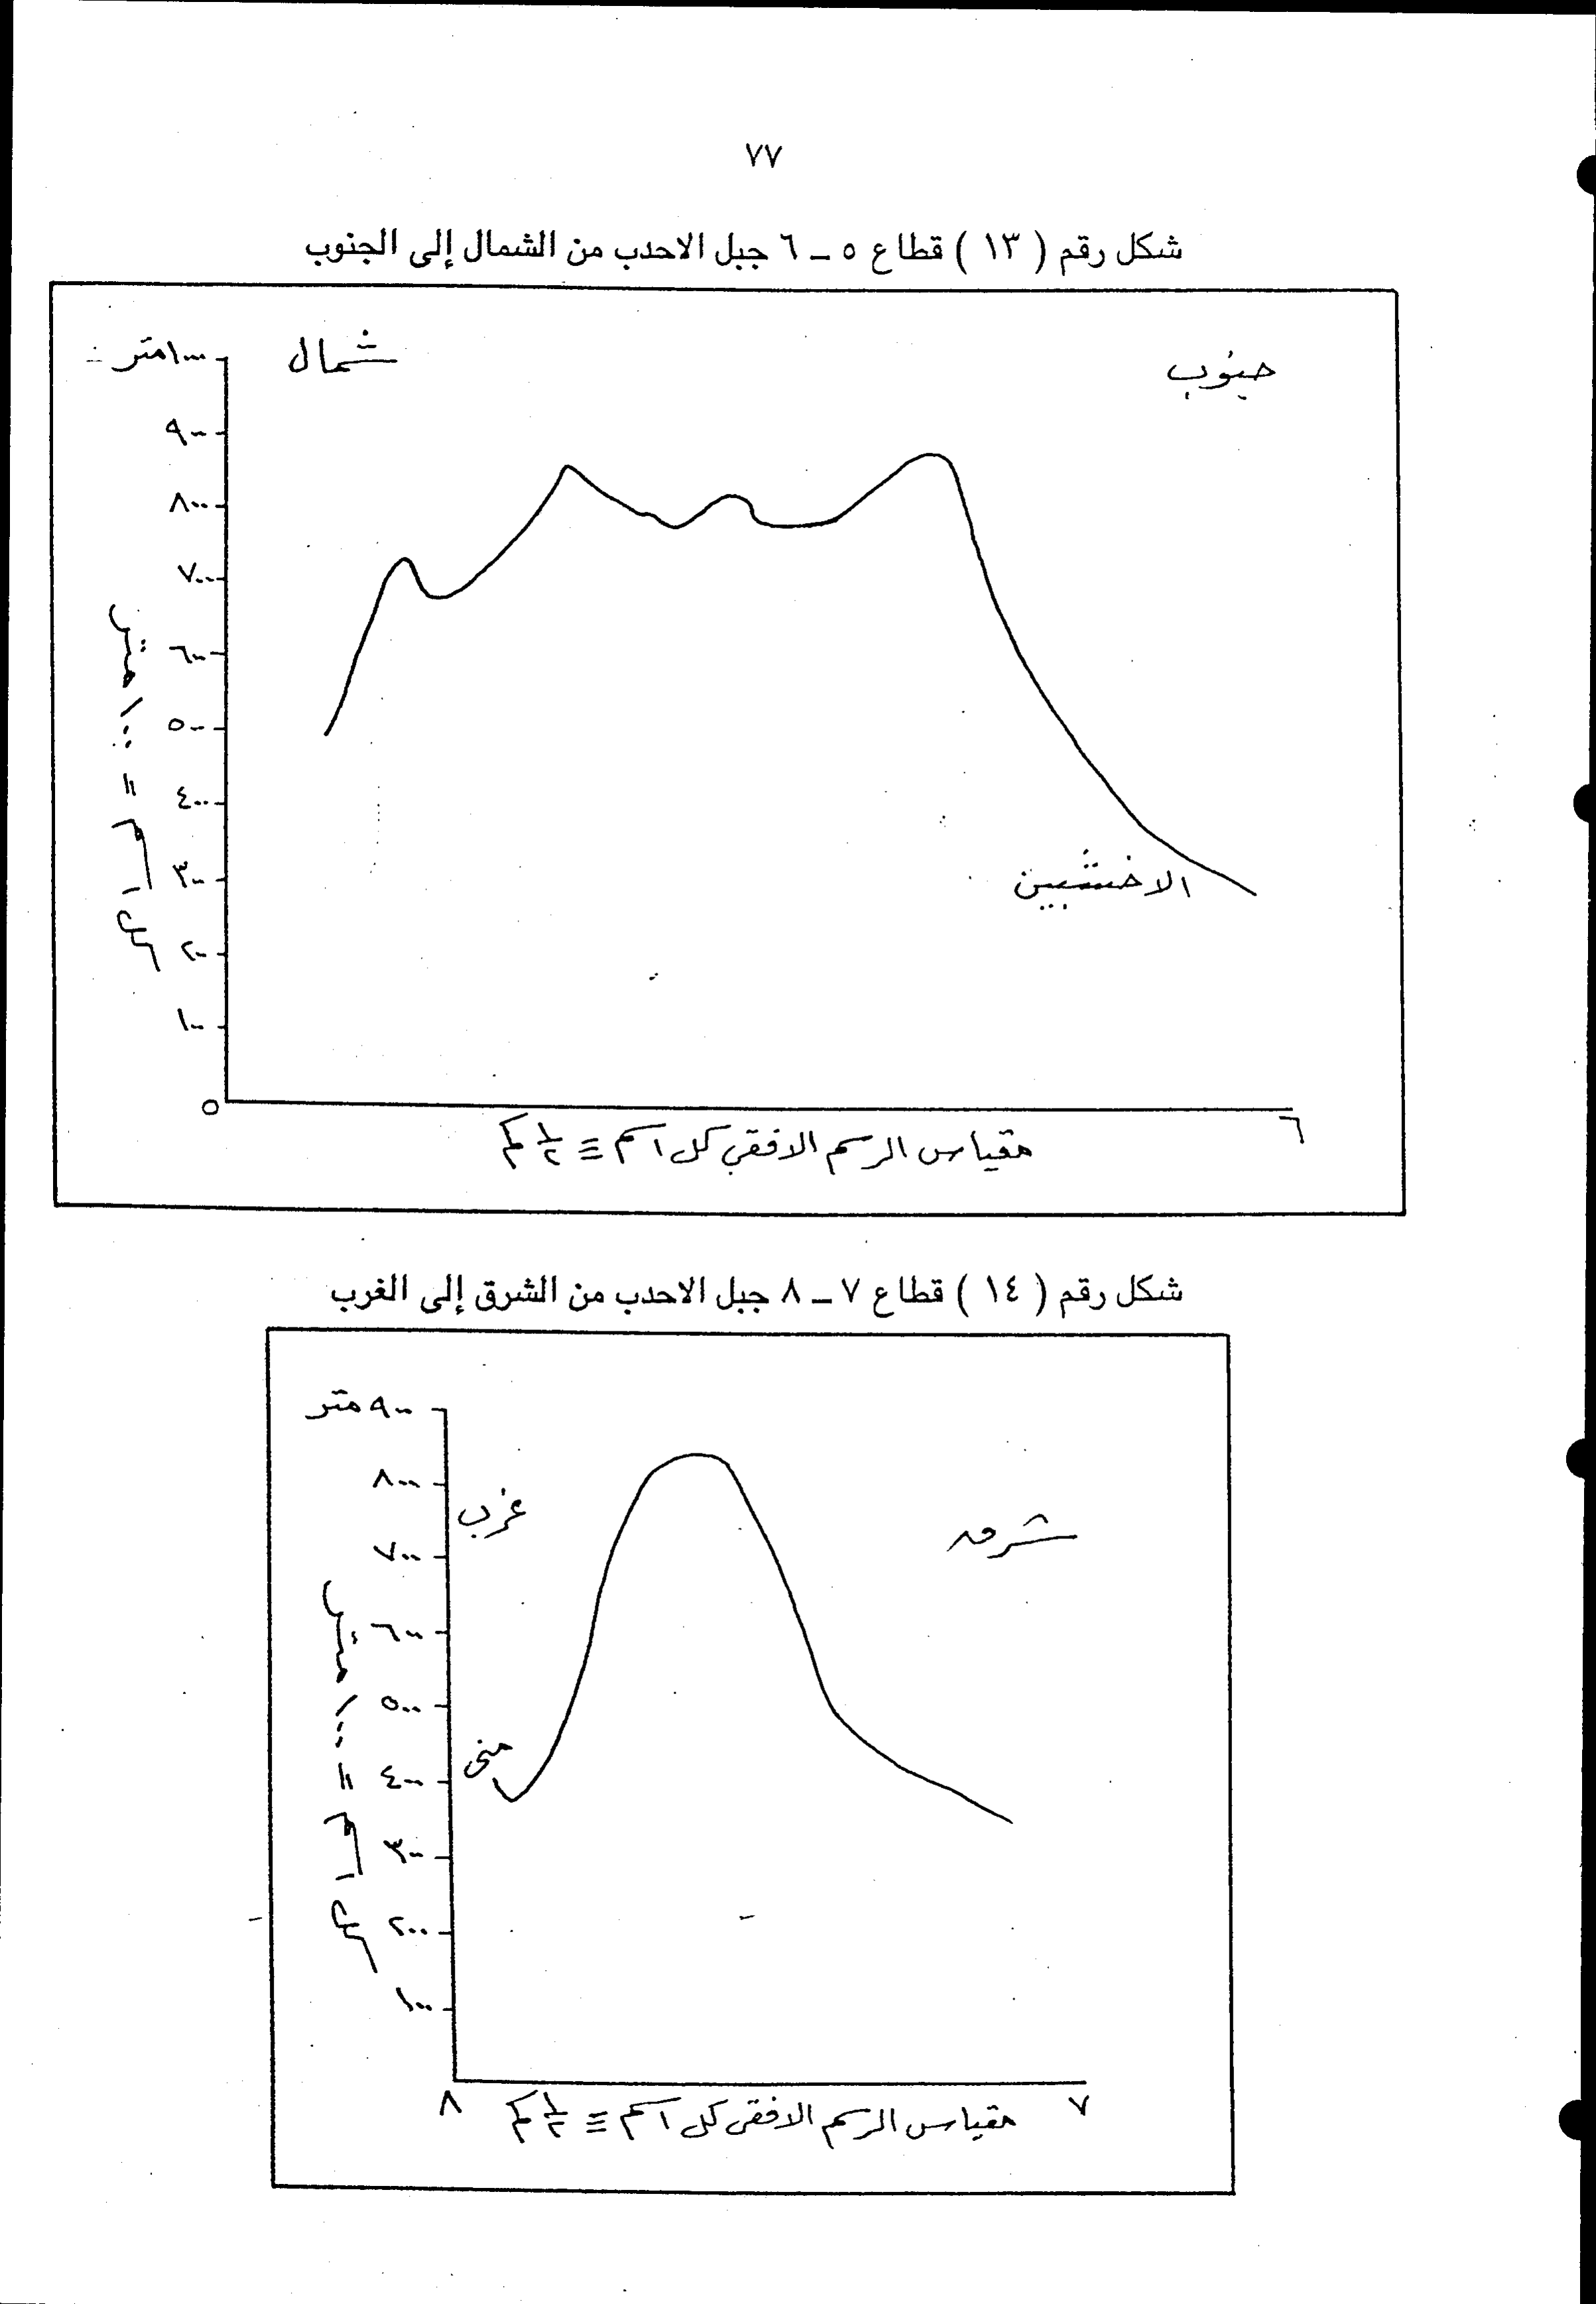 ٧٧
شكل رقم ( ١٣ ) قطاع ٥ ــ ٦ جبل الاحدب من الشمال إلى الجنوب
شمال
جنوب
١٠٠٠متر
٩٠٠
٨٠٠
٧٠٠
٦٠٠
٥٠٠
٤٠٠
٣٠٠
٢٠٠
١٠٠
كل ١سم = ١٠٠متر
الاخشبين
٥
٦
مقياس الرسم الافقي كل ١سم ≡ ١/٢ كم
شكل رقم ( ١٤ ) قطاع ٧ ــ ٨ جبل الاحدب من الشرق إلى الغرب
٩٠٠ متر
٨٠٠
٧٠٠
٦٠٠
٥٠٠
٤٠٠
٣٠٠
٢٠٠
١٠٠
غرب
شرق
منى
كل ١سم = ١٠٠متر
٨
٧
مقياس الرسم الافقى كل ١سم ≡ ١/٢ كم